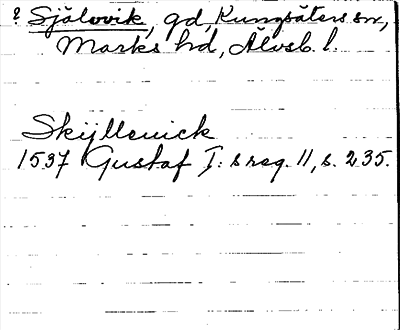 ? Själovik, gd, Kungsäters sn,
Marks hd, Älvsb. l.
Skijllenick
1537 Gustaf I: s reg. 11, s. 235.